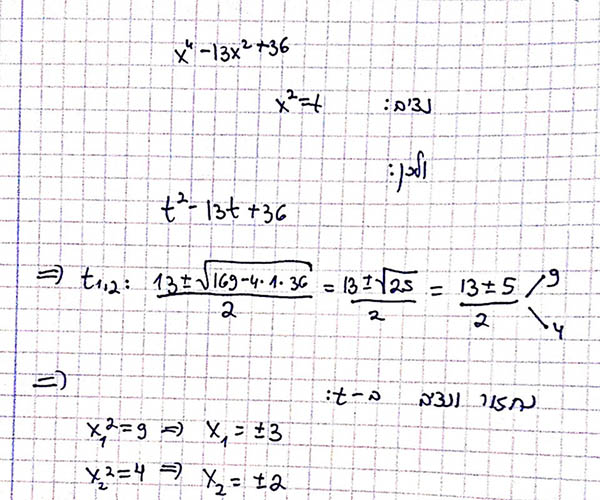 x⁴-13x²+36
נציב: x²=t
ולכן:
t²-13t+36
=> t₁,₂: (13±√(169-4·1·36))/2 = (13±√25)/2 = (13±5)/2 9 4
=>
נחזור ונציב ב-t:
x₁²=9 => x₁=±3
x₂²=4 => x₂=±2